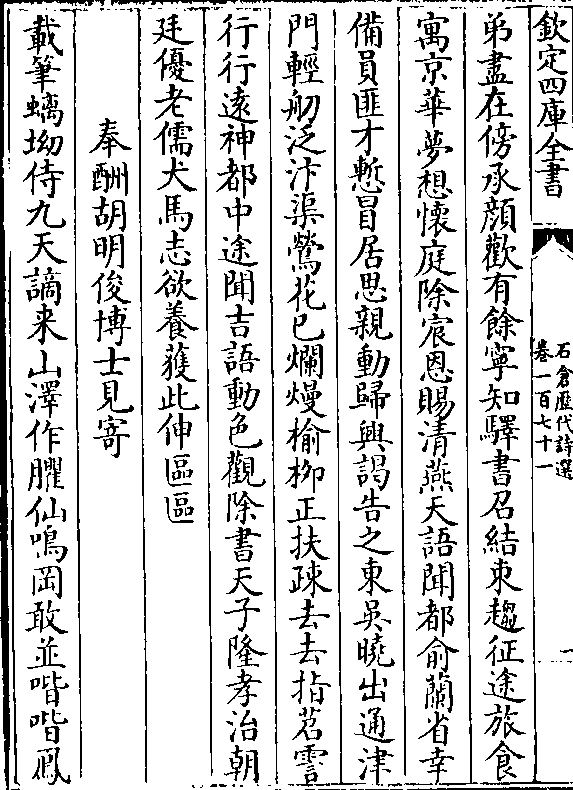 欽定四庫全書
石倉歷代詩選
卷一百七十一
一
弟盡在傍承顔歡有餘寧知驛書召結束趨征途旅食
寓京華夢想懷庭除宸恩賜清燕天語聞都俞蘭省幸
備員匪才慙冒居思親動歸興謁告之東吳曉出通津
門輕舠泛汴渠鶯花已爛熳榆栁正扶疎去去指苕霅
行行逺神都中途聞吉語動色觀除書天子隆孝治朝
廷優老儒犬馬志欲養獲此伸區區
奉酬胡明俊博士見寄
載筆螭坳侍九天謫来山澤作臞仙鳴岡敢並喈喈鳳